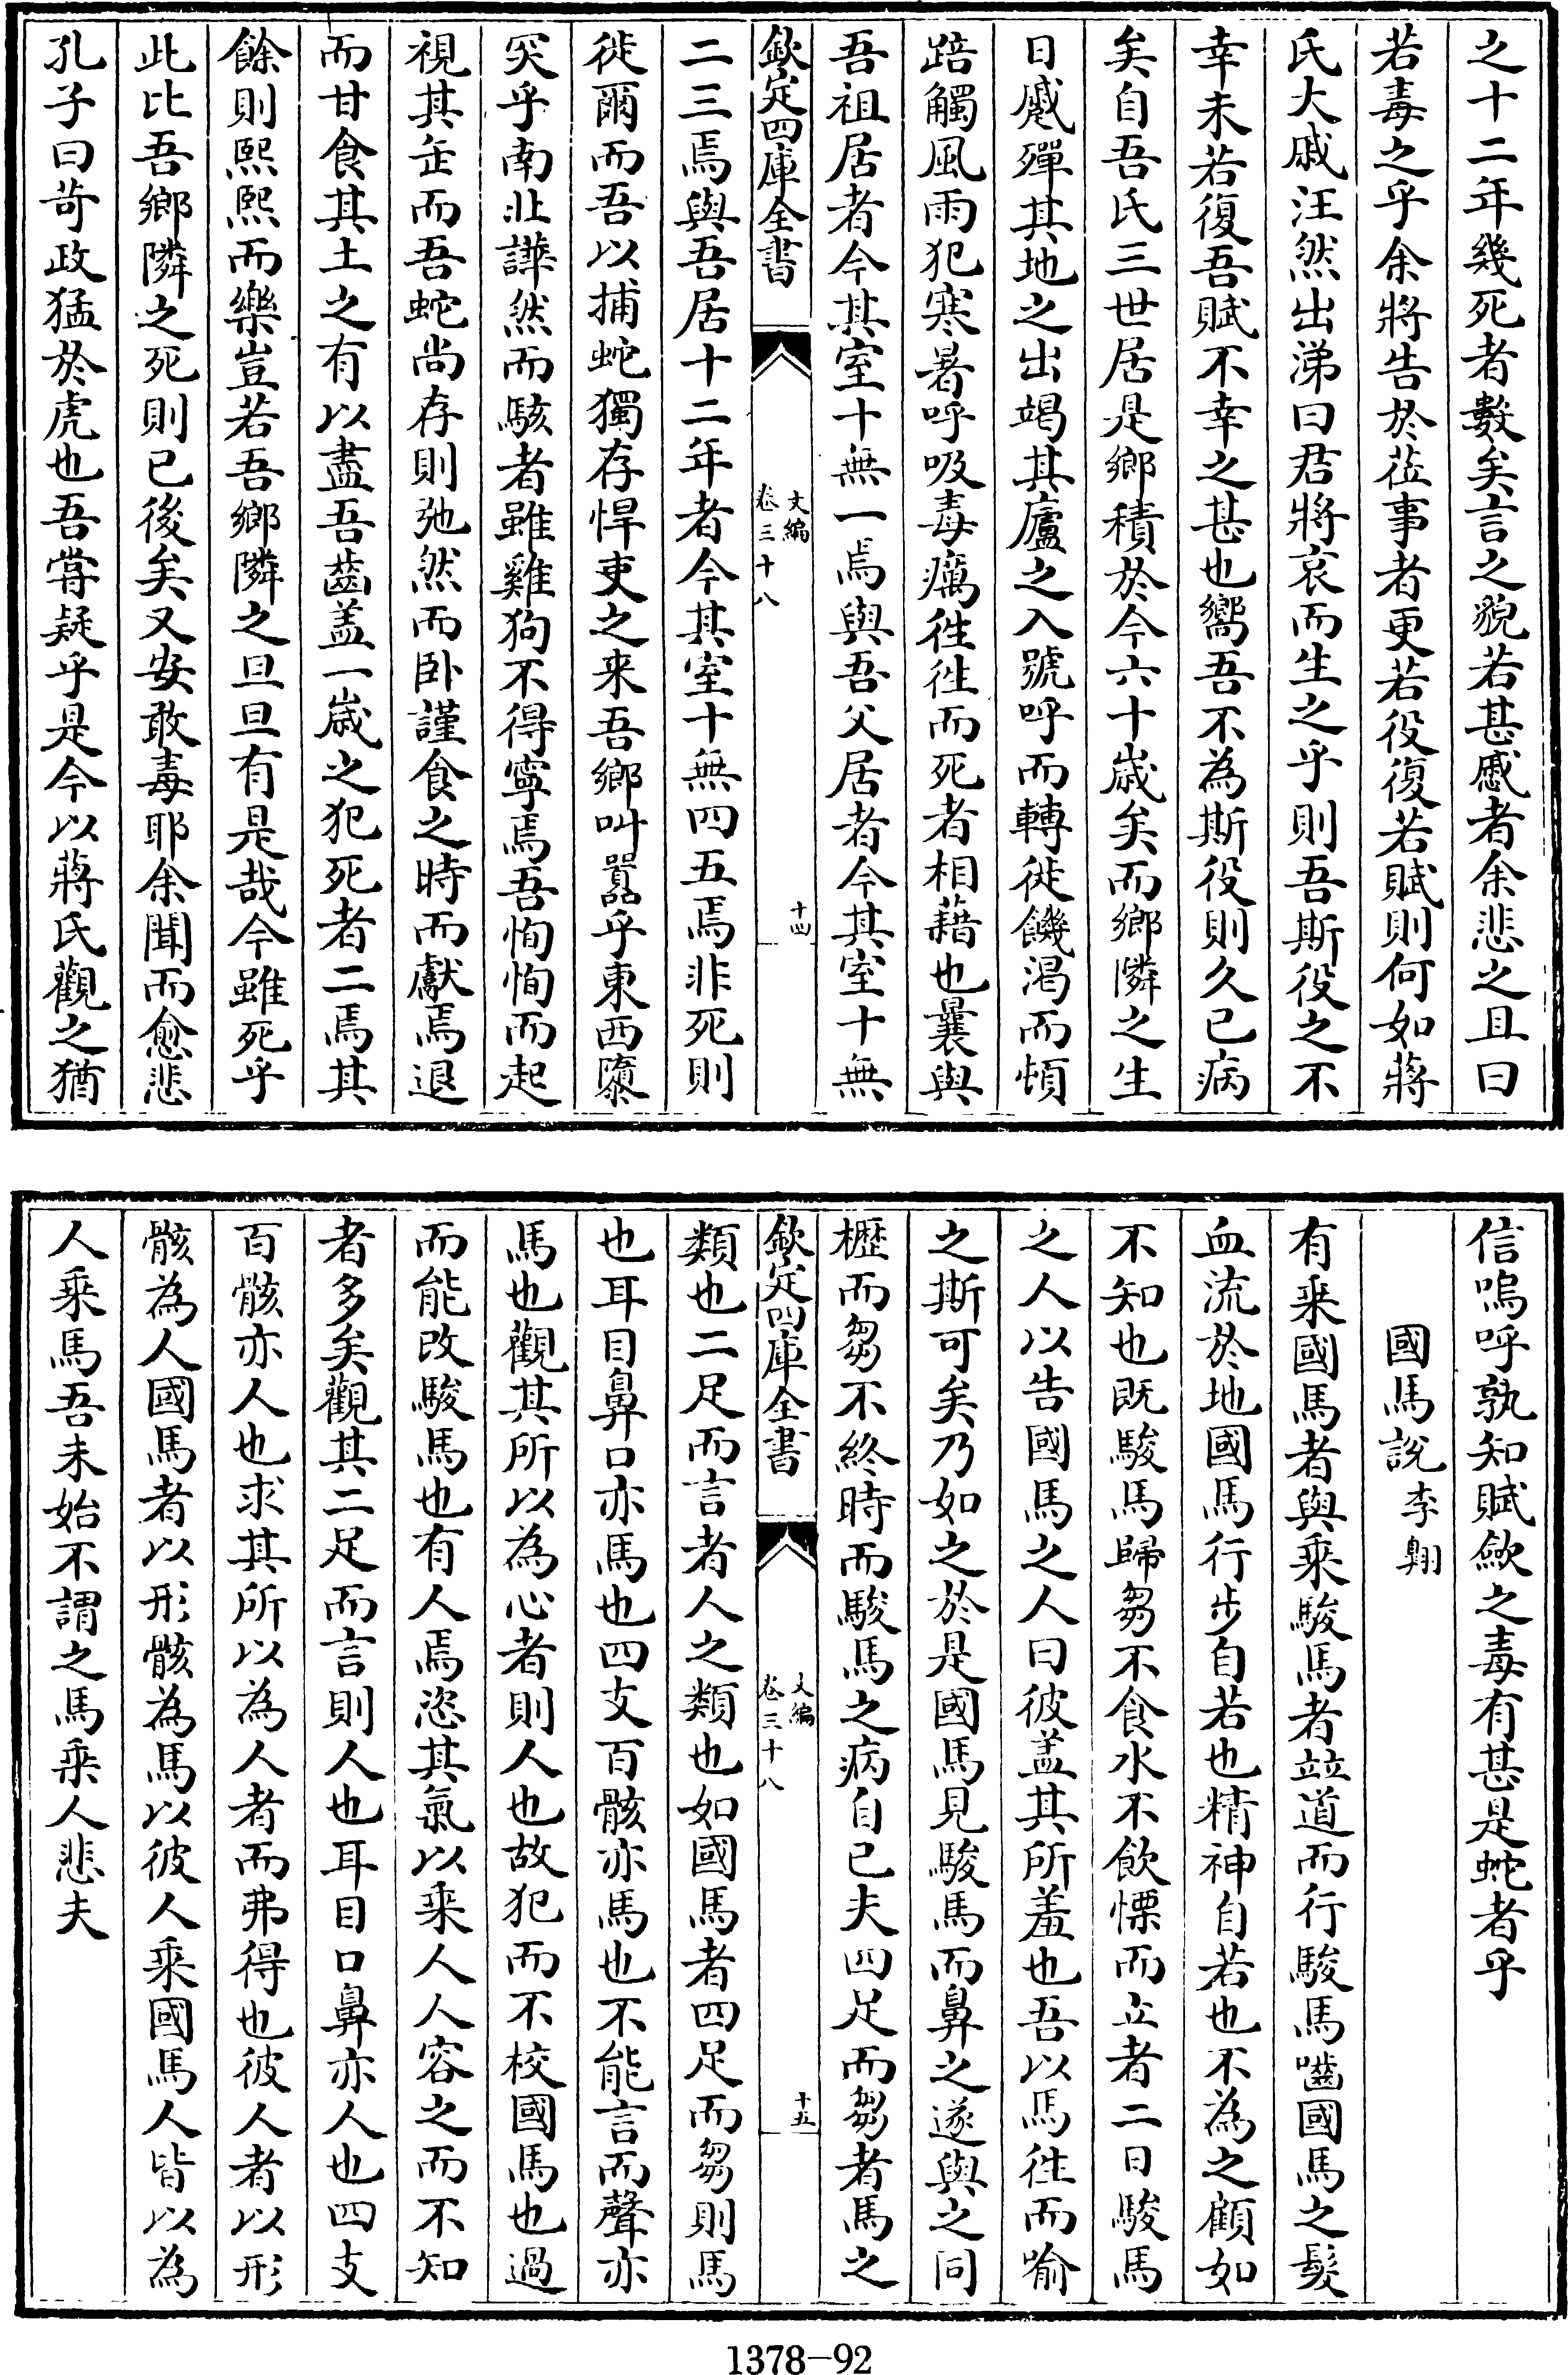 之十二年幾死者數矣言之貌若甚慼者余悲之且曰
若毒之乎余將告於莅事者更若役復若賦則何如蔣
氏大戚汪然出涕曰君將哀而生之乎則吾斯役之不
幸未若復吾賦不幸之甚也嚮吾不為斯役則久已病
矣自吾氏三世居是鄉積於今六十歲矣而鄉隣之生
日蹙殫其地之出竭其廬之入號呼而轉徙饑渴而頓
踣觸風雨犯寒暑呼吸毒癘徃徃而死者相藉也曩與
吾祖居者今其室十無一焉與吾父居者今其室十無
欽定四庫全書
文編
卷三十八
十四
二三焉與吾居十二年者今其室十無四五焉非死則
徙爾而吾以捕蛇獨存悍吏之来吾鄉叫囂乎東西隳
突乎南北譁然而駭者雖雞狗不得寧焉吾恂恂而起
視其缶而吾蛇尚存則弛然而卧謹食之時而獻焉退
而甘食其土之有以盡吾齒盖一歲之犯死者二焉其
餘則熙熙而樂豈若吾鄉隣之旦旦有是哉今雖死乎
此比吾鄉隣之死則已後矣又安敢毒耶余聞而愈悲
孔子曰苛政猛於虎也吾嘗疑乎是今以蔣氏觀之猶
信嗚呼孰知賦斂之毒有甚是蛇者乎
國馬說 李翺
有乗國馬者與乗駿馬者竝道而行駿馬嚙國馬之髮
血流於地國馬行步自若也精神自若也不為之顧如
不知也既駿馬歸芻不食水不飲慄而立者二日駿馬
之人以告國馬之人曰彼盖其所羞也吾以馬徃而喻
之斯可矣乃如之於是國馬見駿馬而鼻之遂與之同
櫪而芻不終時而駿馬之病自已夫四足而芻者馬之
欽定四庫全書
文編
卷三十八
十五
類也二足而言者人之類也如國馬者四足而芻則馬
也耳目鼻口亦馬也四支百骸亦馬也不能言而聲亦
馬也觀其所以為心者則人也故犯而不校國馬也過
而能改駿馬也有人焉恣其氣以乗人人容之而不知
者多矣觀其二足而言則人也耳目口鼻亦人也四支
百骸亦人也求其所以為人者而弗得也彼人者以形
骸為人國馬者以形骸為馬以彼人乗國馬人皆以為
人乗馬吾未始不謂之馬乗人悲夫
1378-92